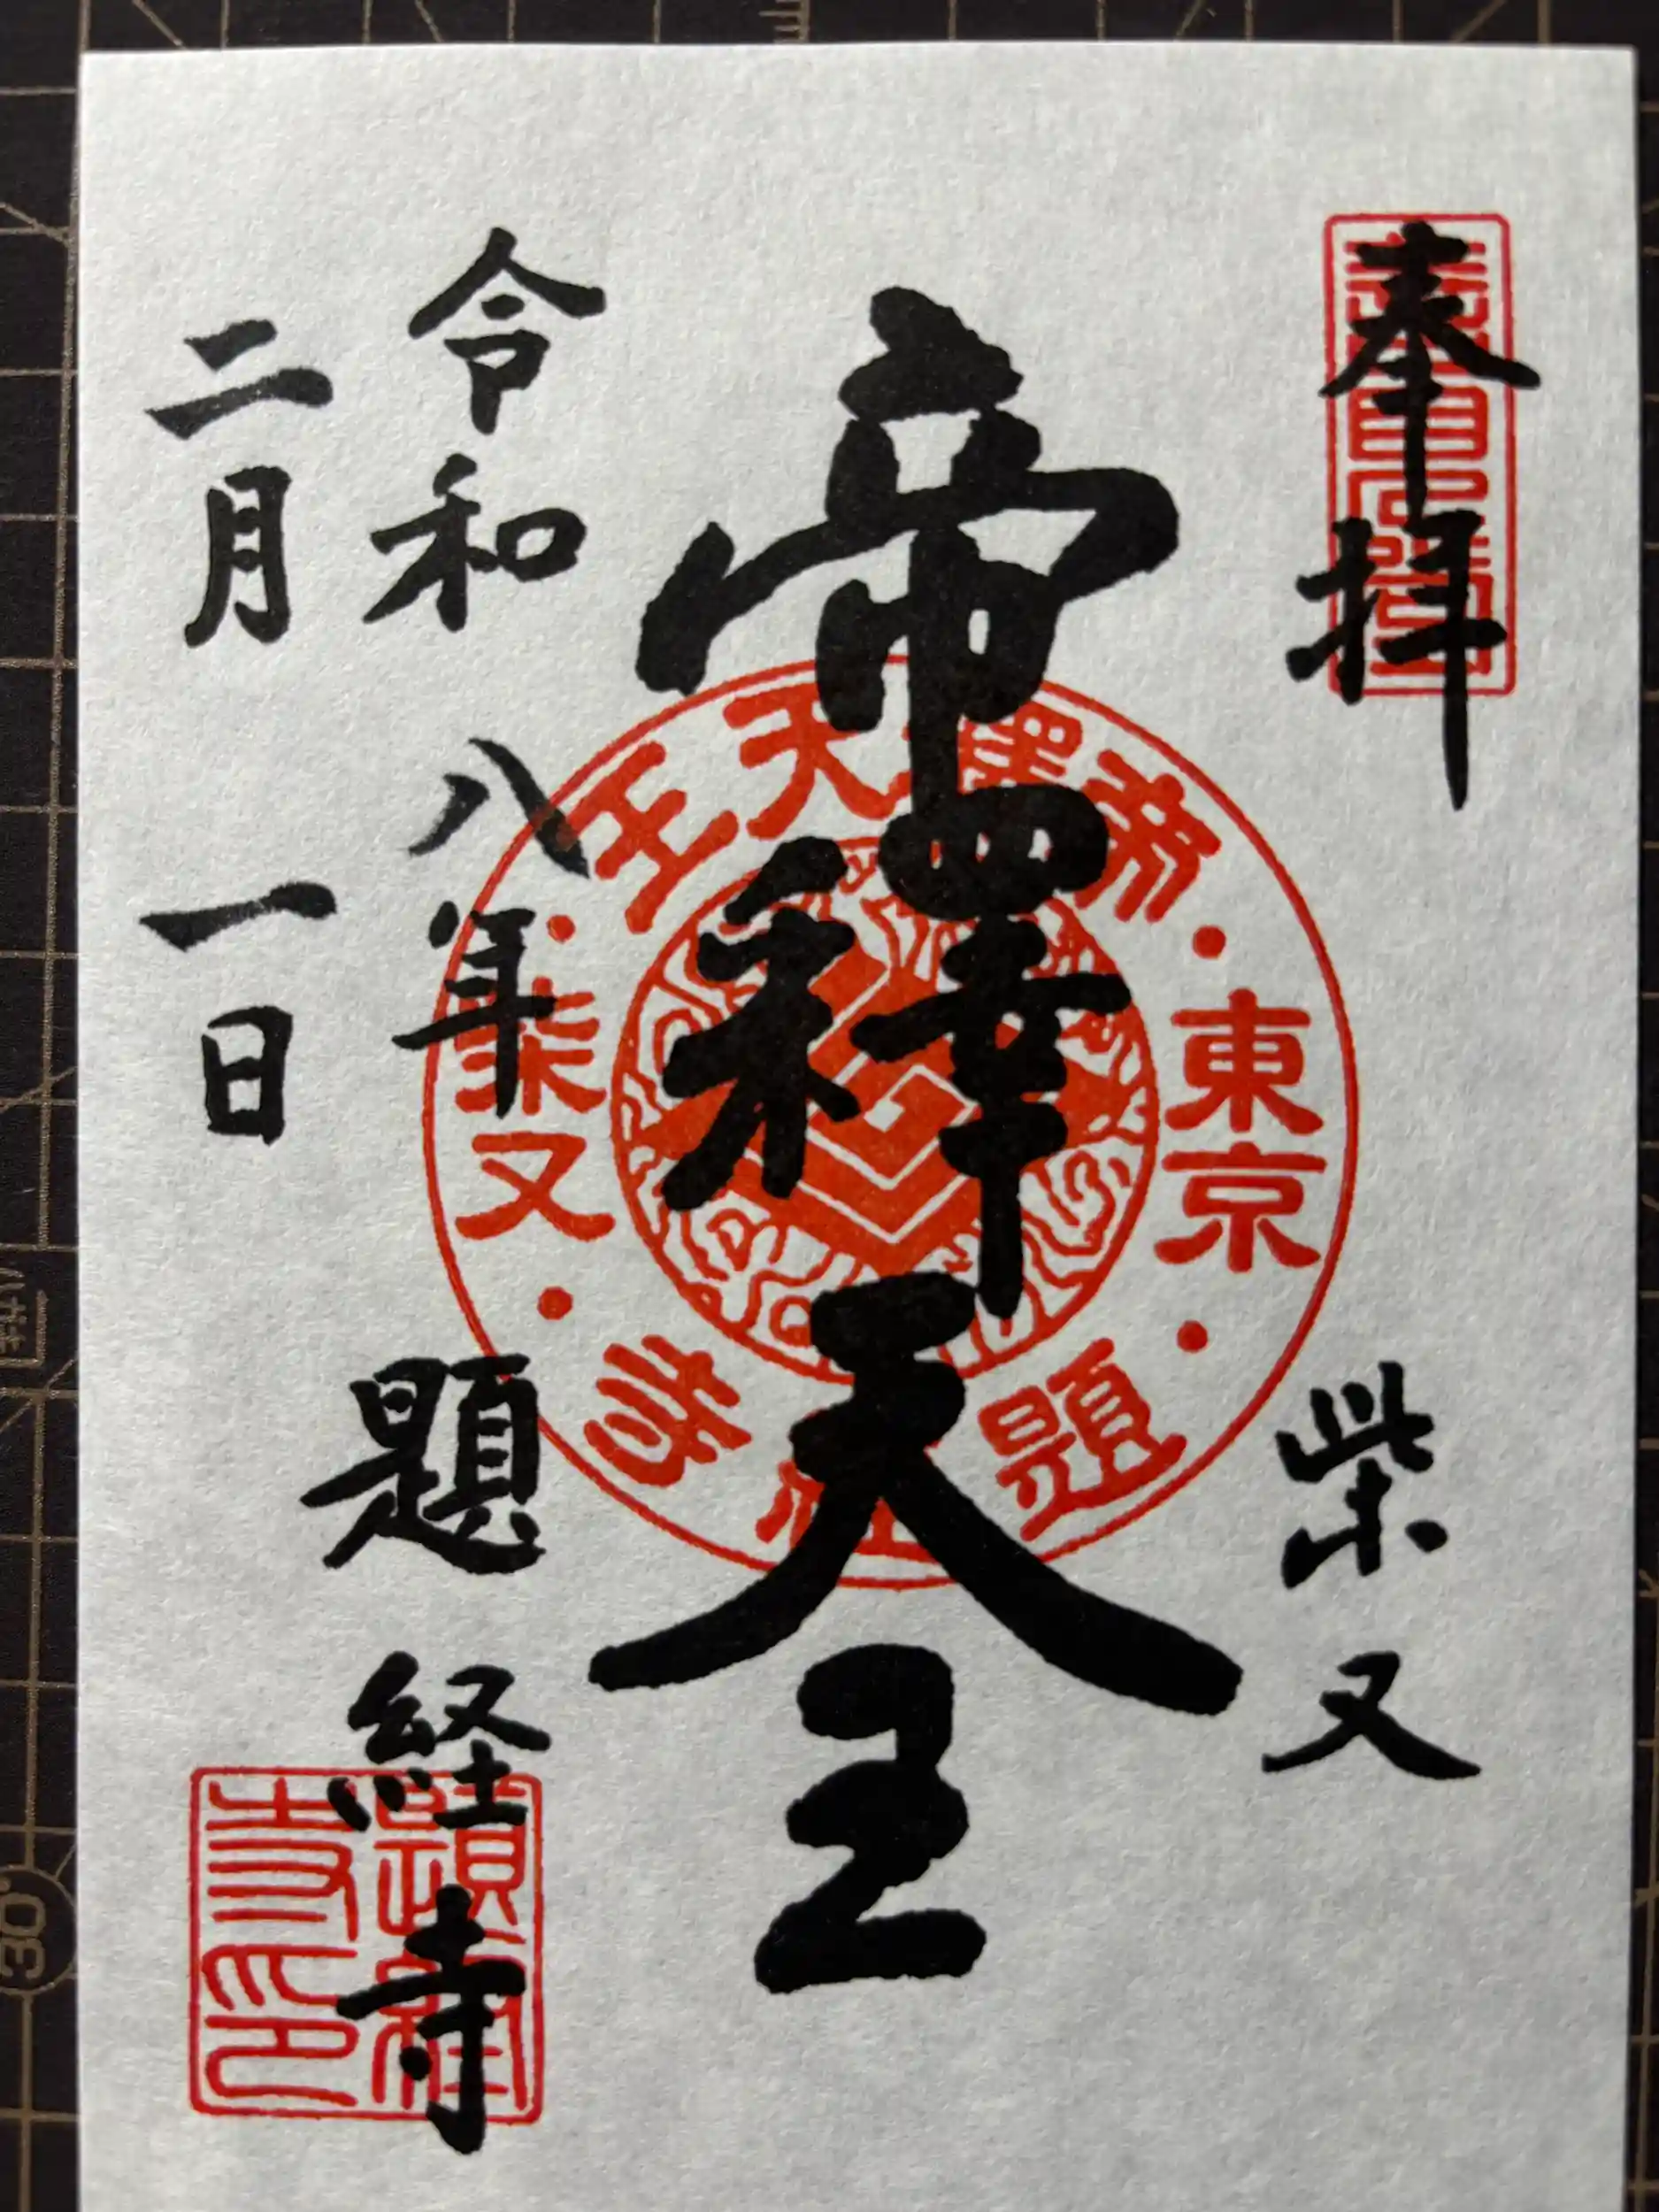 奉拝
柴又
帝釋天王
令和八年
二月一日
題経寺
東京
帝釋天王
柴又
題経寺
題経寺印
30